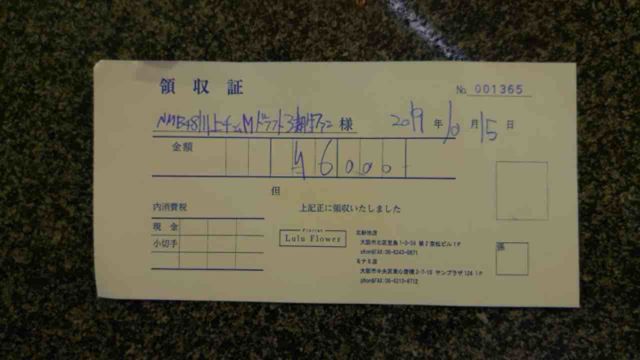 領収証
No. 001365
NMB48川上チームMドラフト3期生ファン 様 2019年10月15日
金額 ¥46000-
但
内消費税
上記正に領収いたしました
現金
小切手
Florist
Lulu Flower
北新地店
大阪市北区堂島1-3-36
ミナミ店
大阪市中央区東心斎橋2-7-18 サンプラザ124 1F